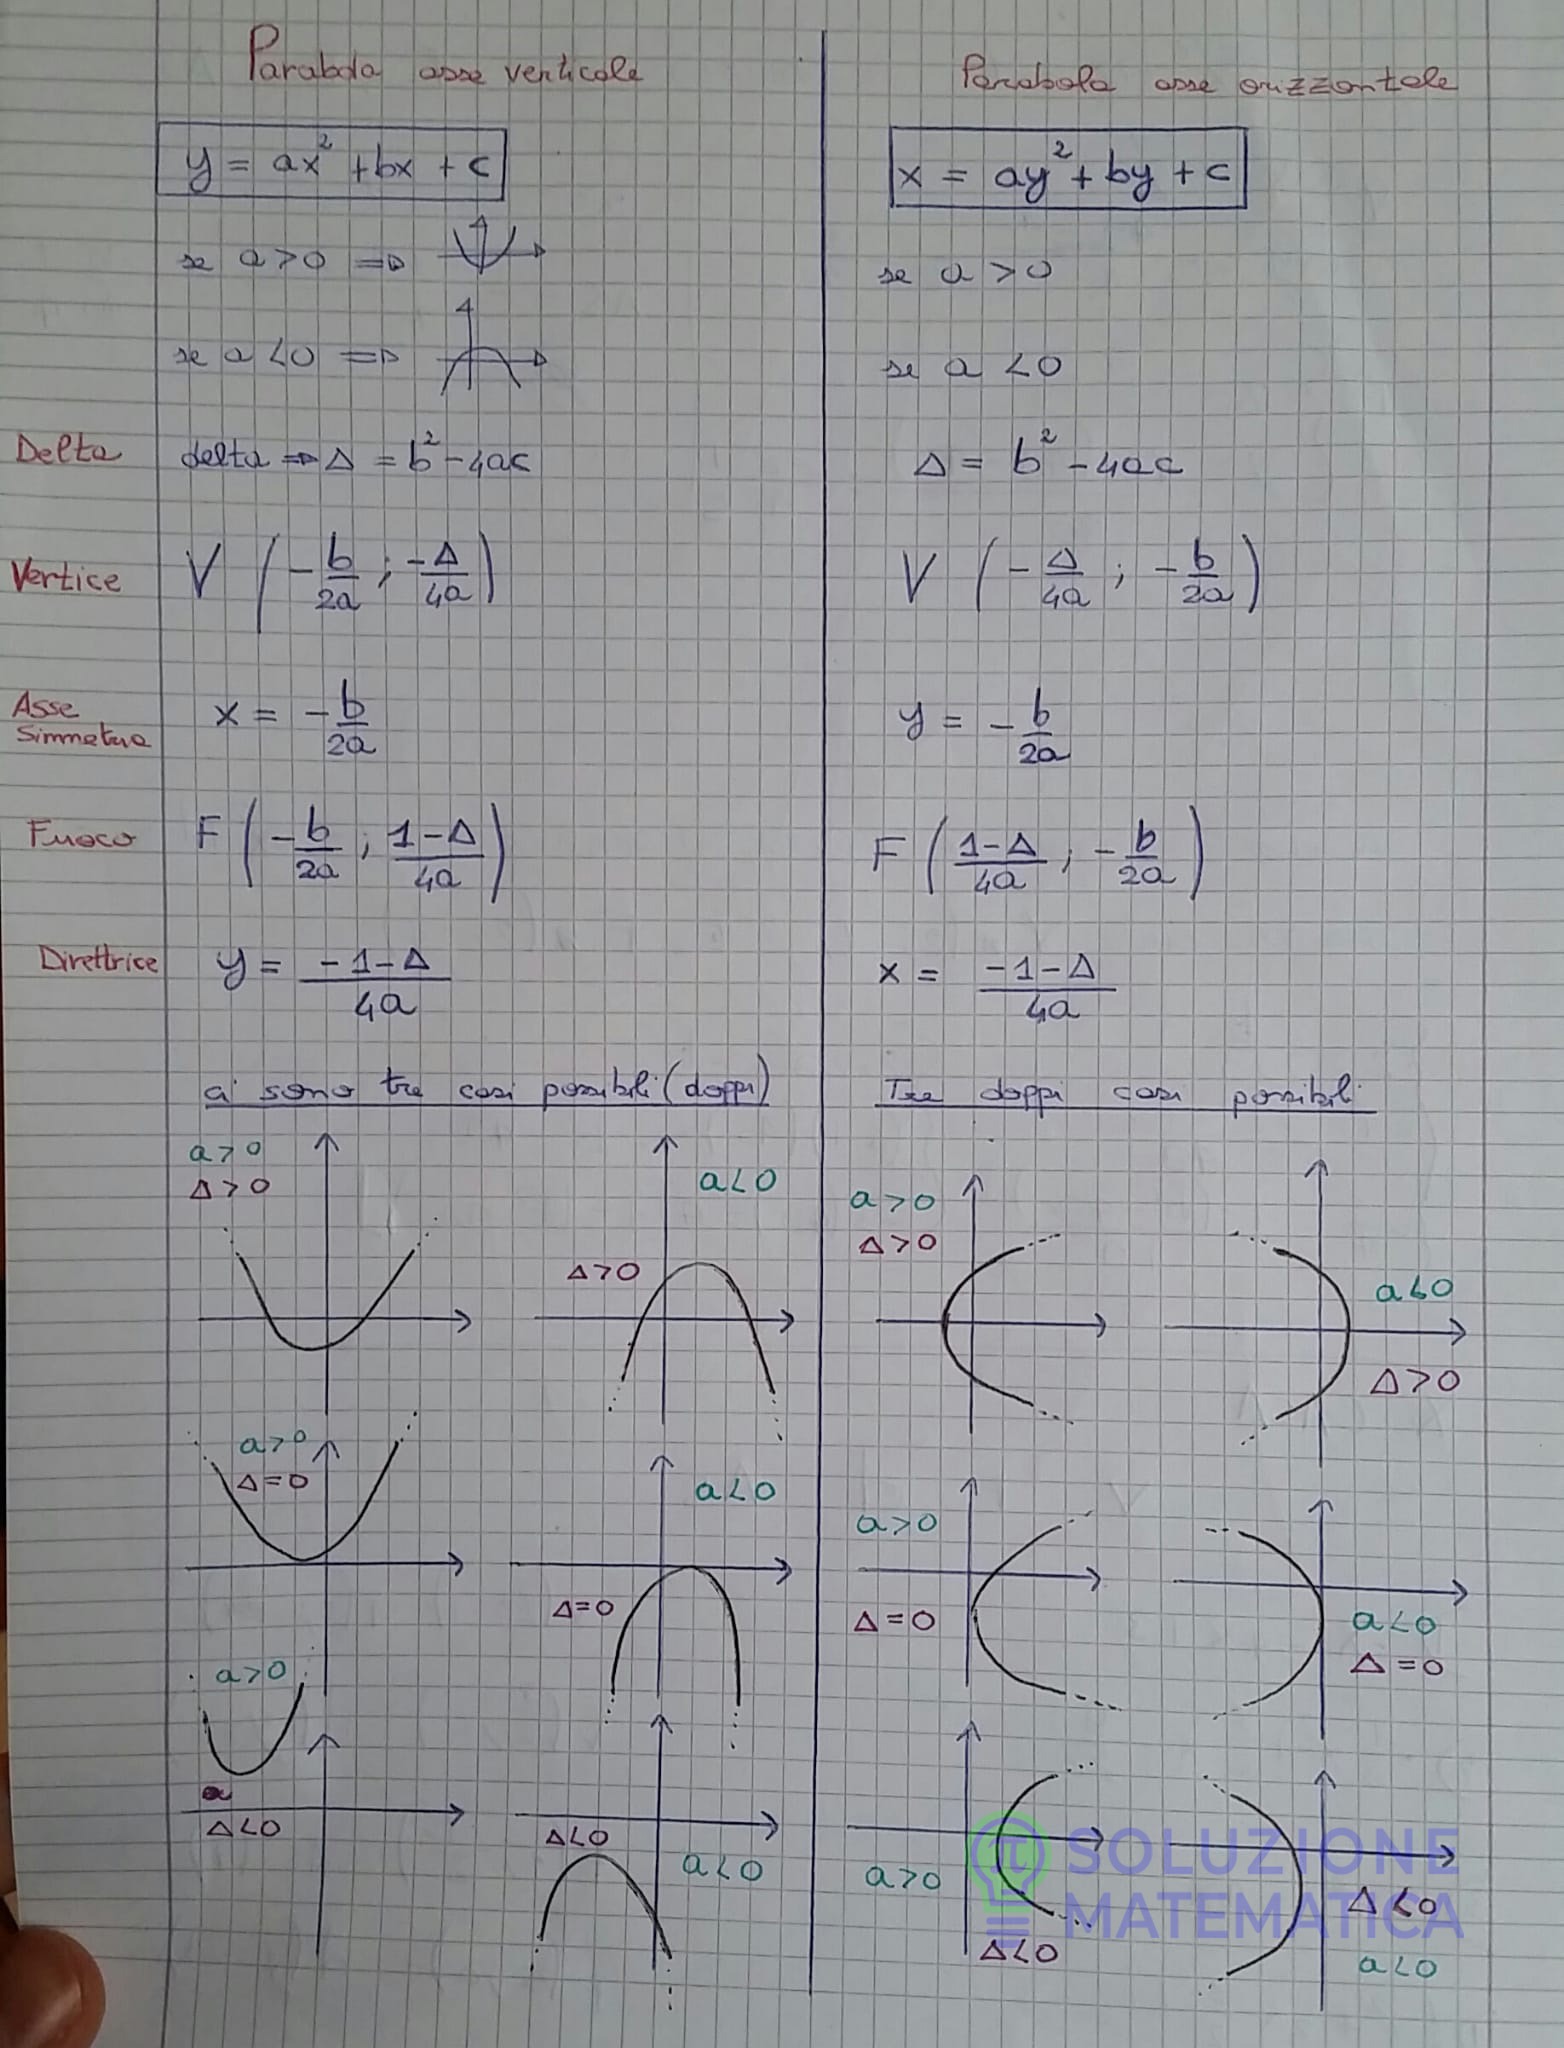 Parabola asse verticale
y = ax² + bx + c
se a > 0 ⇒
se a < 0 ⇒
Delta delta ⇒ Δ = b² - 4ac
Vertice V (-b/2a ; -Δ/4a)
Asse Simmetria x = -b/2a
Fuoco F (-b/2a ; 1-Δ/4a)
Direttrice y = -1-Δ/4a
ci sono tre casi possibili (doppi)
a > 0
Δ > 0
a < 0
Δ > 0
a > 0
Δ = 0
a < 0
Δ = 0
a > 0
Δ < 0
Δ < 0
a < 0
Parabola asse orizzontale
x = ay² + by + c
se a > 0
se a < 0
Δ = b² - 4ac
V (-Δ/4a ; -b/2a)
y = -b/2a
F (1-Δ/4a ; -b/2a)
x = -1-Δ/4a
Tre doppi casi possibili
a > 0
Δ > 0
a < 0
Δ > 0
a > 0
Δ = 0
a < 0
Δ = 0
a > 0
Δ < 0
Δ < 0
a < 0
π SOLUZIONE
MATEMATICA